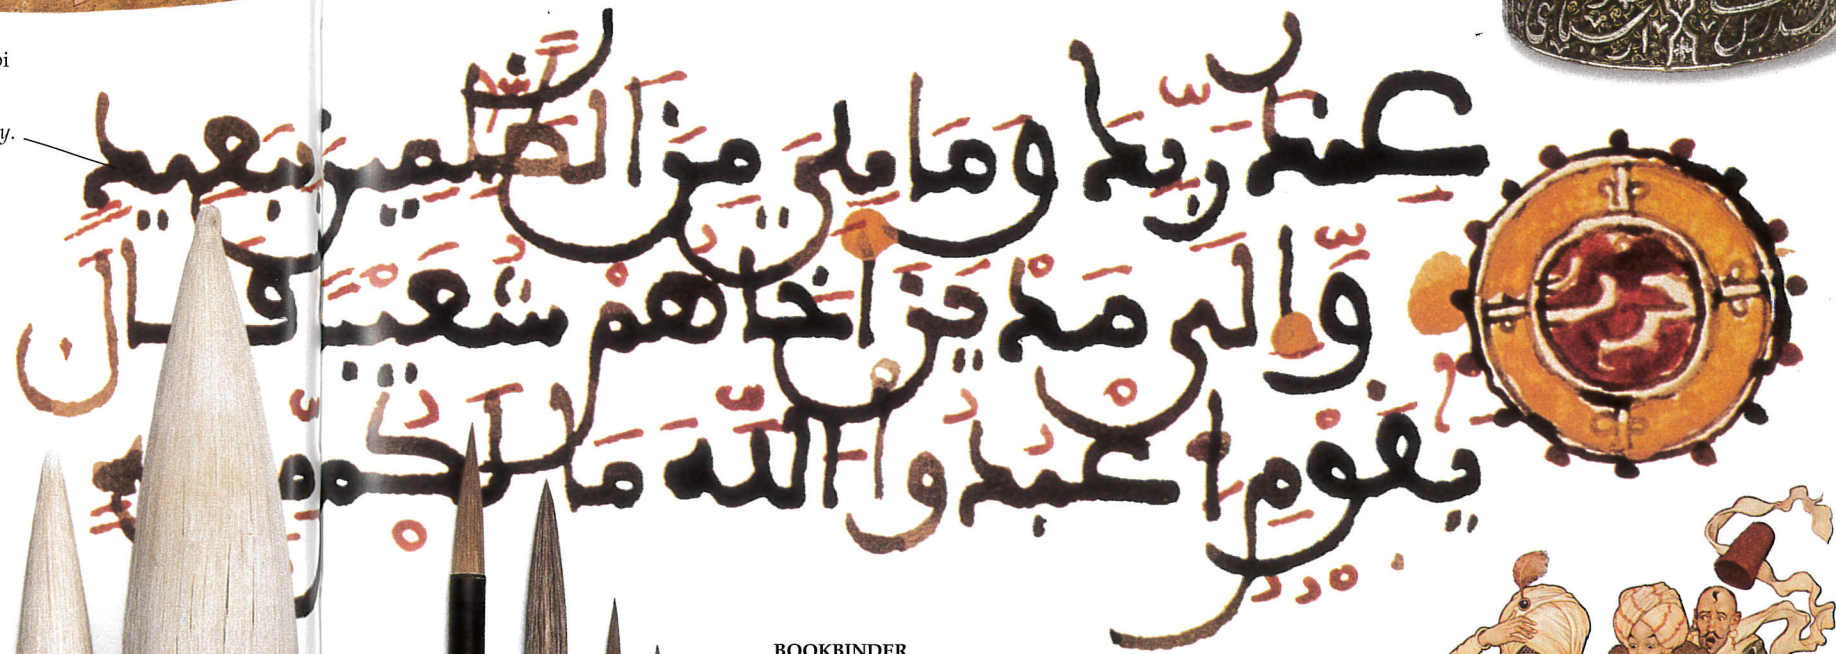 عند ربك وما هي من الظلمين ببعيد
والى مدين اخاهم شعيبا قال
يقوم اعبدوا الله ما لكم من
BOOKBINDER